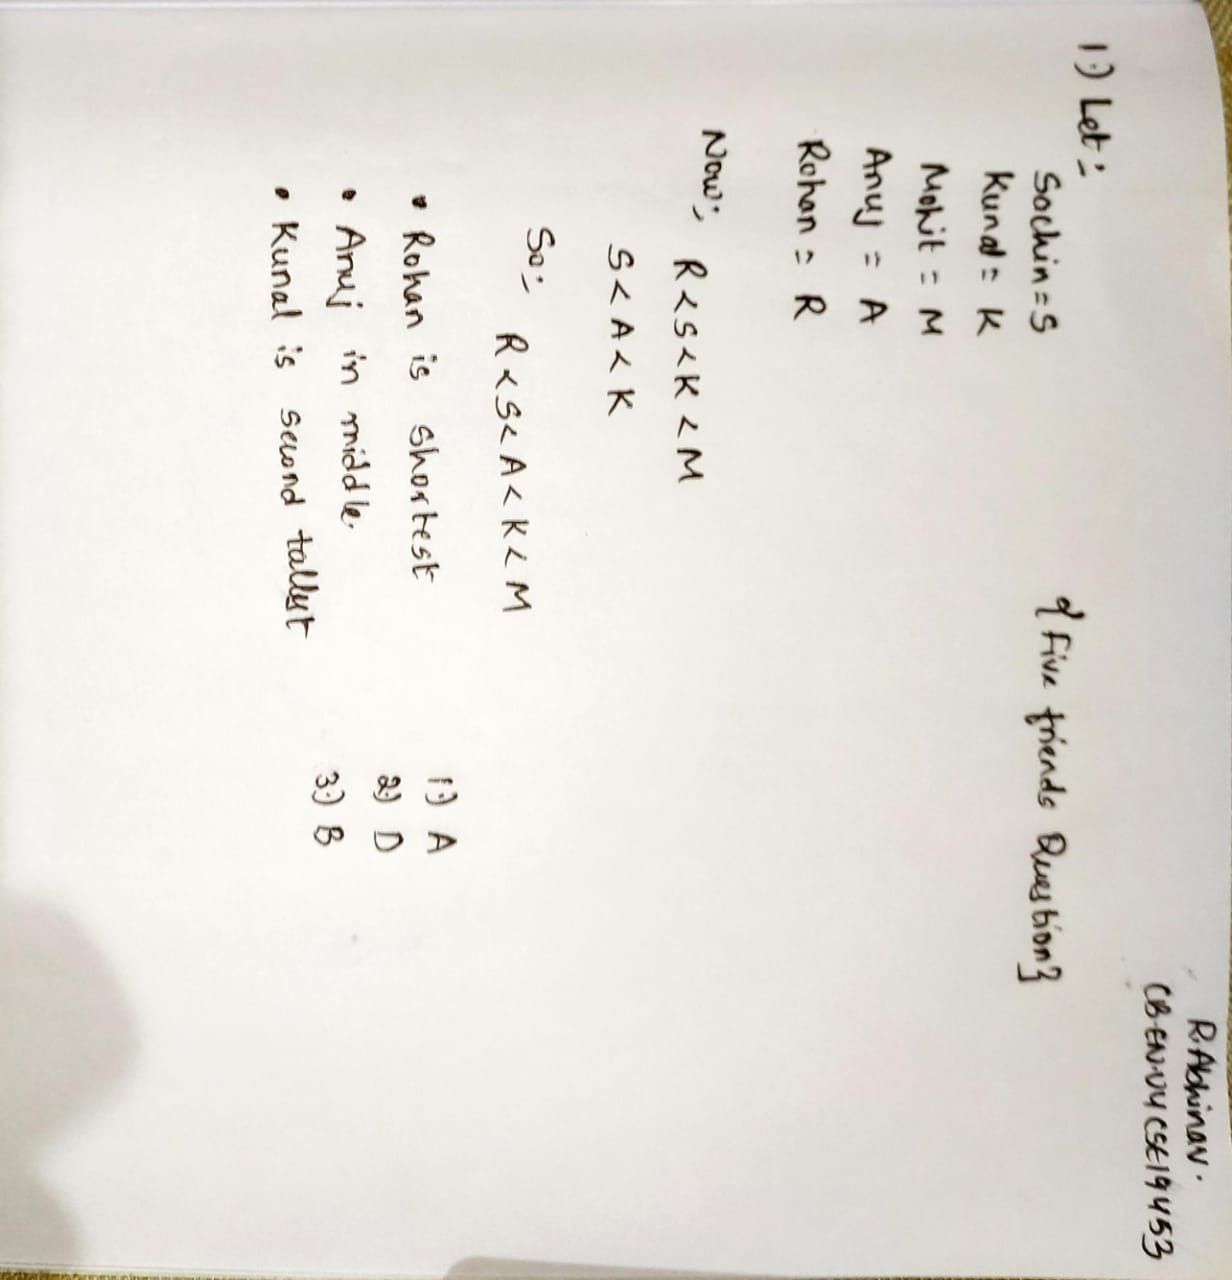 R. Abhinav.
CB.EN.U4CSE19453
1.) Let:
{ Five friends Question}
Sachin = S
Kunal = K
Mohit = M
Anuj = A
Rohan = R
Now:, R < S < K < M
S < A < K
So:, R < S < A < K < M
• Rohan is shortest
• Anuj in middle.
• Kunal is second tallest
1.) A
2.) D
3.) B